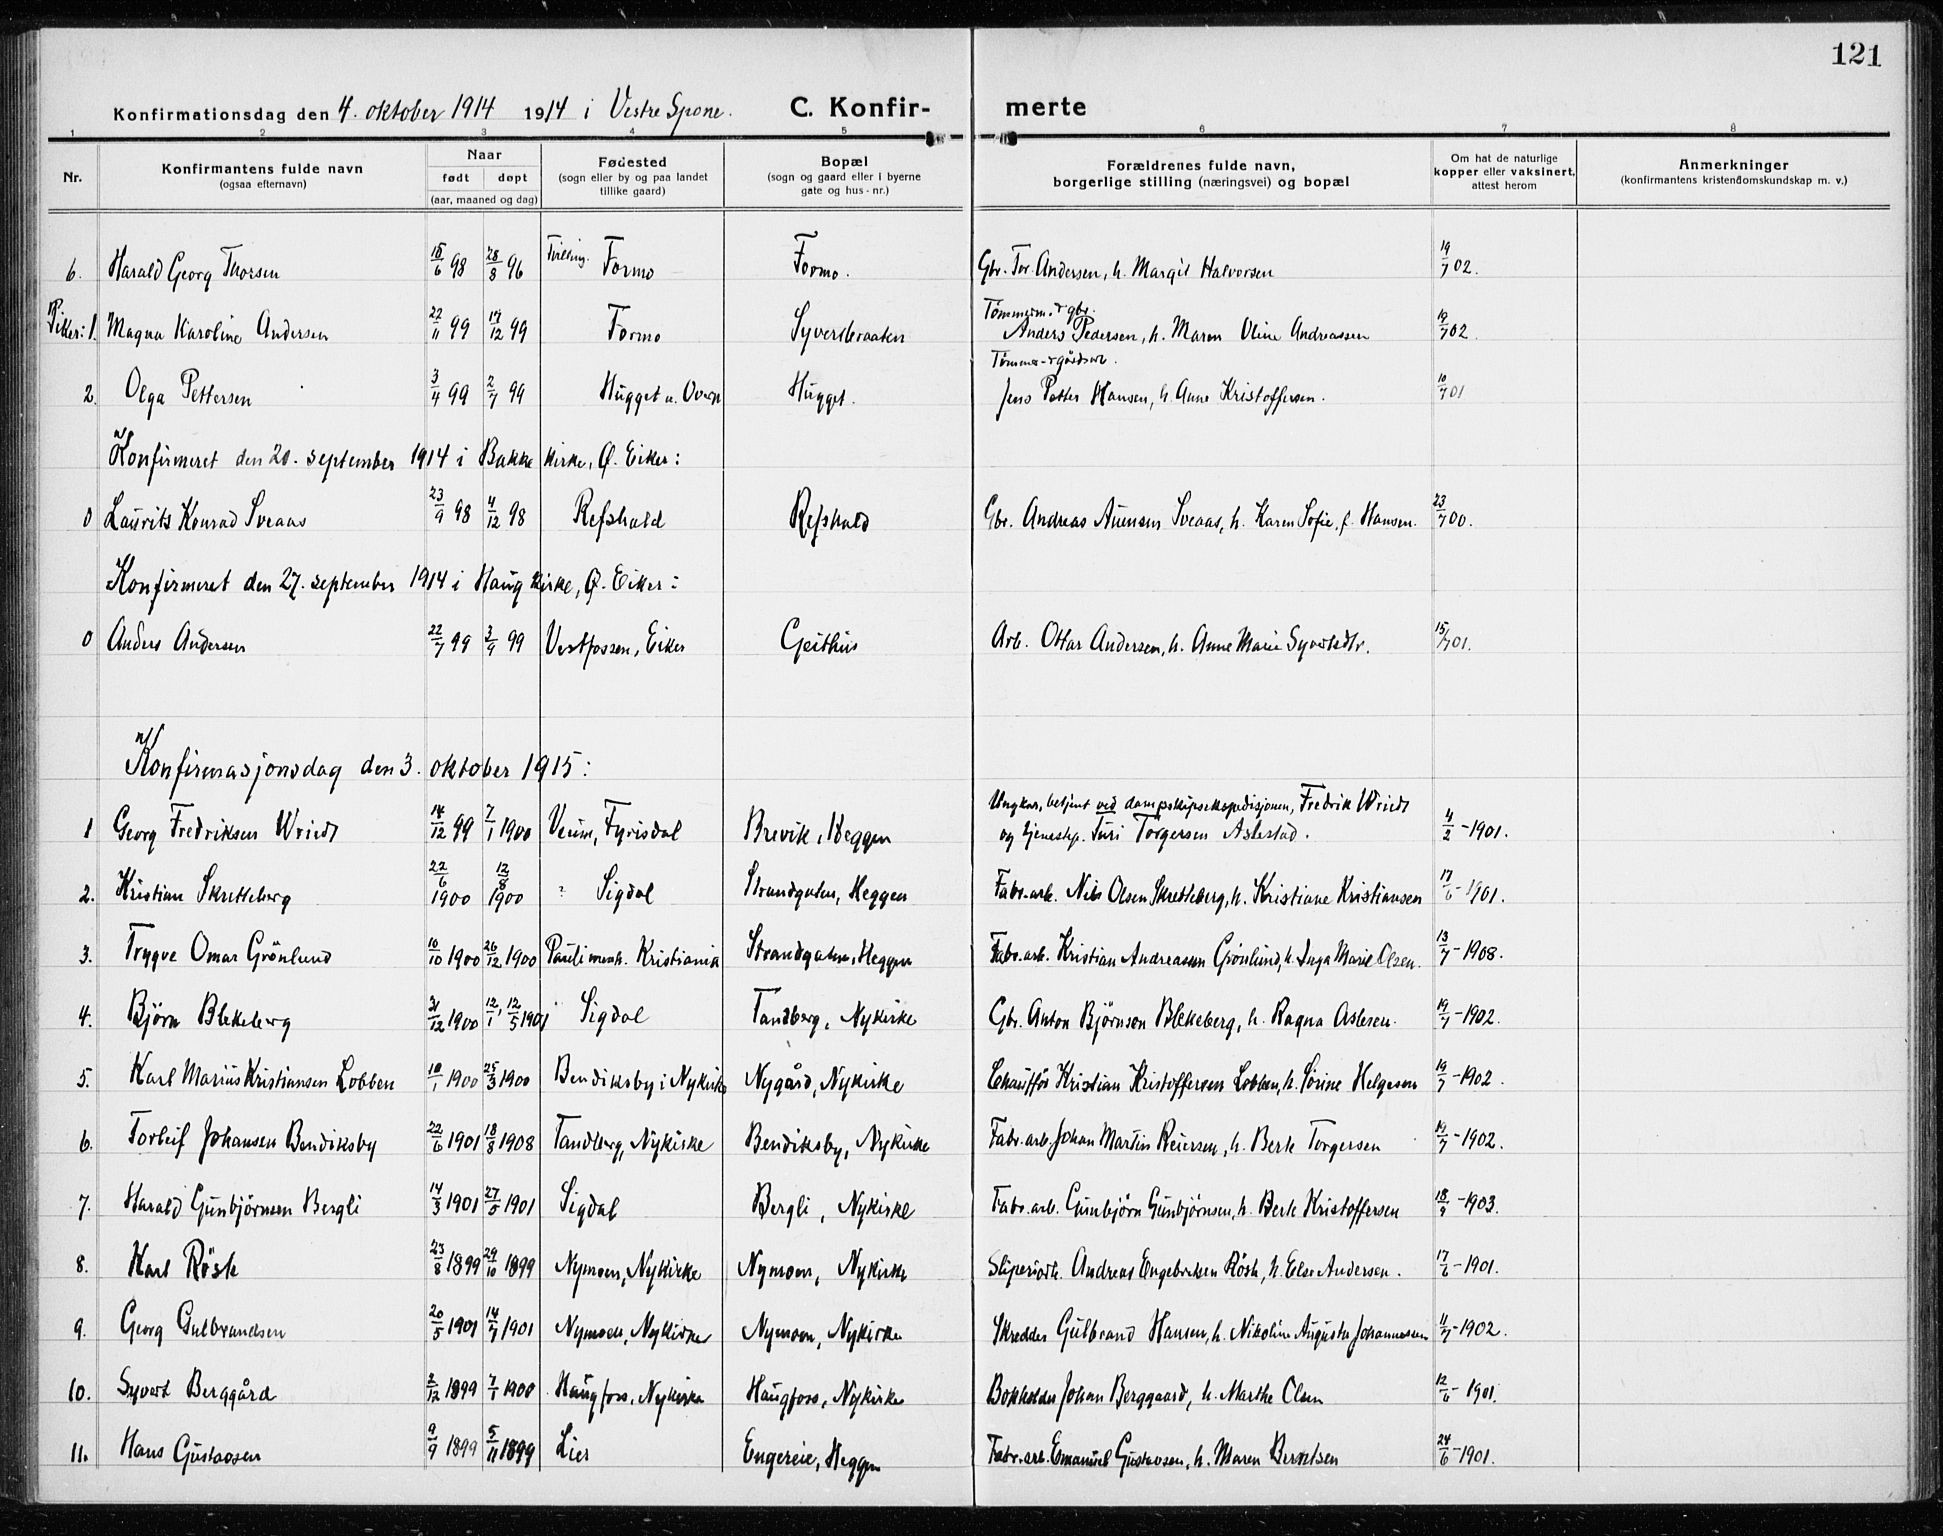 121
Konfirmationsdag den 4. oktober 1914 1914 i Vestre Spone. C. Konfir- merte
1 2 3 4 5 6 7 8
Nr. Konfirmantens fulde navn (ogsaa efternavn) Naar født døpt (aar, maaned og dag) Fødested (sogn eller by og paa landet tillike gaard) Bopæl (sogn og gaard eller i byerne gate og hus-nr.) Forældrenes fulde navn, borgerlige stilling (næringsvei) og bopæl Om hat de naturlige kopper eller vaksinert, attest herom Anmerkninger (konfirmantens kristendomskundskap m. v.)
6. Harald Georg Thorsen 18/6 98 28/8 96 Tvilling. Formo Formo. Gbr. Tor. Andersen, h. Margit Halvorsen 19/7 02.
Piker: 1. Magna Karoline Andersen 22/11 99 17/12 99 Formo Syvertbraaten Tømmerm. & gbr. Anders Pedersen, h. Maren Oline Andreassen 19/7 02.
2. Olga Pettersen 3/4 99 2/7 99 Hugget u. Overn Hugget. Jens Petter Hansen, h. Anne Kristoffersen. 10/7 01
Konfirmeret den 20. september 1914 i Bakke kirke, Ø. Eiker:
0 Laurits Konrad Sveaas 23/9 98 4/12 98 Refshald Refshald Gbr. Andreas Auensen Sveaas, h. Karen Sofie, f. Hansen. 23/7 00.
Konfirmeret den 27. september 1914 i Haug kirke, Ø. Eiker:
0 Anders Andersen 22/7 99 3/9 99 Vestfossen, Eiker Geithus Arb. Ottar Andersen, h. Anne Marie Syvertsdtr. 15/7 01.
Konfirmasjonsdag den 3. oktober 1915:
1 Georg Fredriksen Wriedt 14/12 99 7/1 1900 Veum, Fyrisdal Brevik, Heggen Ungkar, betjent ved dampskipsekspedisjonen, Fredrik Wriedt og tjenestep. Turi Torgersen Aslestad. 4/2-1901.
2. Kristian Skretteberg 22/6 1900 12/8 1900 Sigdal Strandgaten, Heggen Fabr.arb. Nils Olsen Skretteberg, h. Kristiane Kristiansen 17/6-1901.
3. Trygve Omar Grönlund 10/10 1900 26/12 1900 Pauli menh. Kristiania Strandgaten, Heggen Fabr.arb. Kristian Andreassen Grönlund, h. Inga Marie Olsen. 13/7-1908.
4. Björn Blekeberg 31/12 1900 12/1, 12/5 1901 Sigdal Tandberg, Nykirke Gbr. Anton Björnson Blekeberg, h. Ragna Aslesen. 19/7-1902.
5. Karl Marius Kristiansen Lobben 10/1 1900 25/3 1900 Bendiksby i Nykirke Nygård, Nykirke Chaufför Kristian Kristoffersen Lobben, h. Sörine Helgesen 19/7-1902.
6. Torleif Johansen Bendiksby 22/6 1901 18/8 1908 Tandberg, Nykirke Bendiksby, Nykirke Fabr.arb. Johan Martin Reiersen, h. Berte Torgersen 19/7-1902.
7. Harald Gunbjörnsen Bergli 14/3 1901 27/5 1901 Sigdal Bergli, Nykirke Fabr.arb. Gunbjörn Gunbjörnsen, h. Berte Kristoffersen 18/9-1903.
8. Karl Röste 23/8 1899 29/10 1899 Nymoen, Nykirke Nymoen, Nykirke Sliperiarb. Andreas Engebretsen Röste, h. Else Andersen. 17/6-1901.
9. Georg Gulbrandsen 20/5 1901 14/7 1901 Nymoen, Nykirke Nymoen, Nykirke Skredder Gulbrand Hansen, h. Nikoline Augusta Johannessen 11/7-1902.
10. Syvert Berggård 2/12 1899 7/1 1900 Haugfoss, Nykirke Haugfoss, Nykirke Bokholder Johan Berggaard, h. Marthe Olsen 12/6-1901.
11. Hans Gustavsen 9/9 1899 5/11 1899 Lier Engereie, Heggen Fabr.arb. Emanuel Gustavsen, h. Maren Berntsen 24/6-1901.